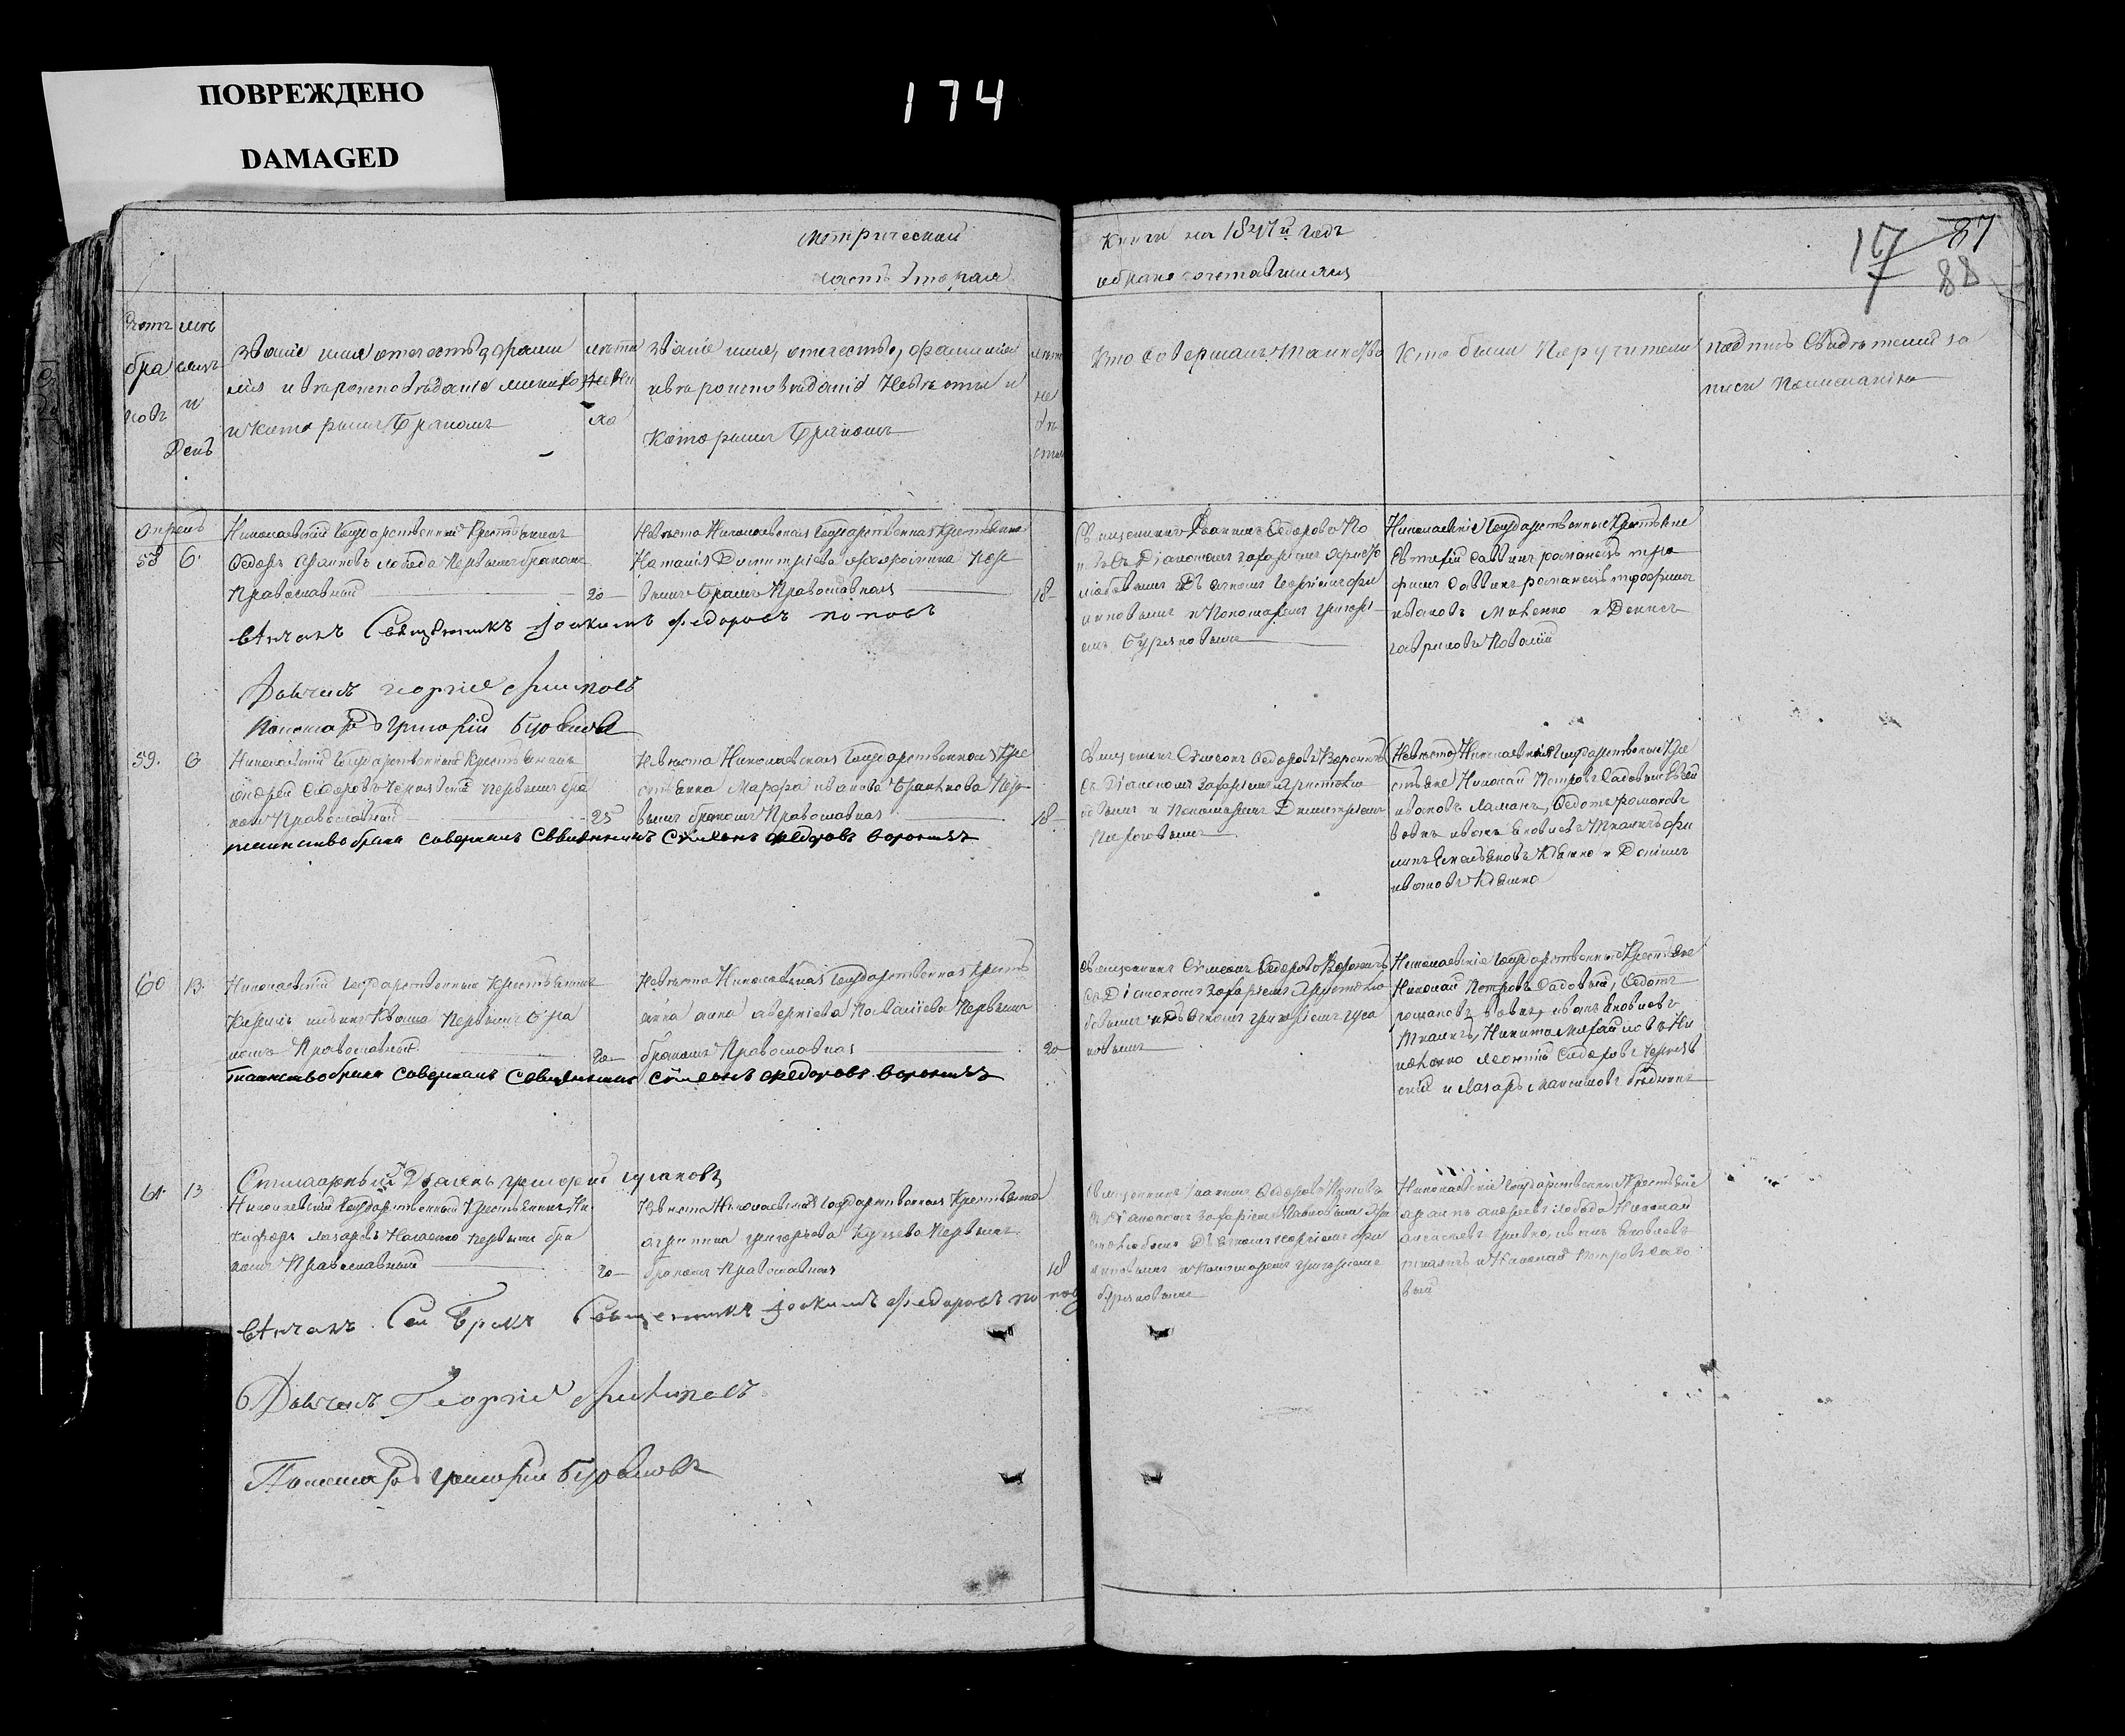 ПОВРЕЖДЕНО
DAMAGED
174
Метрической
часть вторая
книги на 1847й годъ
о бракосочетавшихся
17
87
88
Счотъ браковъ
мѣсяцъ и День
Званіе имя отечество, фами
лія и вѣроисповѣданіе жениха
и которымъ бракомъ
лѣта жениха
Званіе имя, отечество, фамилія
и вѣроисповѣданіе Невѣсты и
которымъ бракомъ
лѣта невѣсты
Кто совершалъ таинство
Кто были Поручители
подпись свидѣтелей за
писи по желанію
апрель
58 6.
Николаевскій Государственный Крестьянинъ
Федоръ Лобода первымъ бракомъ
Православный
20
Невѣста Николаевская Государственная крестьянка
Наталія Димитріева пер
вымъ бракомъ Православная
18
Священникъ Іоакимъ Федоровъ По
повъ съ Діакономъ Захаріемъ Христо
любовымъ Дьячкомъ Георгіемъ Фи
липовымъ и Пономаремъ Григорі
емъ
Николаевскіе Государственные Крестьяне
Евтихій Саввинъ романецъ тро
фимъ Саввинъ романецъ трофимъ
ивановъ Михенко и Денисъ
гавриловъ
вѣнчалъ Священникъ Іоакимъ Федоровъ поповъ
Дьячекъ георгіе филиповъ
Пономаръ Григорій
59. 6
Николаевскій Государственный Крестьянинъ
андрей Сидоровъ первымъ бра
комъ Православный
25
Невѣста Николаевская Государственная Кре
стьянка Марфа иванова пер
вымъ бракомъ Православная
18
Священникъ Сѵмеонъ Федоровъ Вороничъ
съ Діакономъ Захаріемъ Христолю
бовымъ и Пономаремъ Димитріемъ
Николаевскіе Государственные Кре
стьяне Николай Петровъ Садовый
ивановъ Ломанъ, Федотъ романовъ
вовкъ иванъ Яковлевъ Ткаличъ фи
липъ Емельяновъ и Даніилъ
ивановъ
таинство брака совершалъ Священникъ Сѵмеонъ Федоровъ Вороничъ
60 13.
Николаевскій Государственный Крестьянинъ
Кирилъ Кваша первымъ бра
комъ Православный
20
Невѣста Николаевская Государственная кресть
янка анна аверкіева первымъ
бракомъ Православная
20
Священникъ Сѵмеонъ Федоровъ Вороничъ
съ Діакономъ Захаріемъ Христолю
бовымъ и Дьячкомъ григоріемъ гуса
ковымъ
Николаевскіе Государственные Крестьяне
Николай Петровъ Садовый, Федотъ
романовъ вовкъ, иванъ Яковлевъ
Ткаличъ, Никита Михайловъ
Леонтій Сидоровъ
и Лазарь Максимовъ
таинство брака совершалъ Священникъ Сѵмеонъ Федоровъ Вороничъ
Дьячекъ григорій гусаковъ
61. 13
Николаевскій Государственный Крестьянинъ Ни
кифоръ Лазаревъ первымъ бра
комъ Православный
20
Невѣста Николаевская Государственная Крестьянка
агрипина григорьева первымъ
бракомъ Православная
18
Священникъ Іоакимъ Федоровъ Поповъ
съ Діакономъ Захаріемъ Павловымъ Хри
столюбовымъ Дьячкомъ Георгіемъ Фи
липовымъ и Пономаремъ григоріемъ
Николаевскіе Государственные Крестьяне
андреевъ Лобода Николай
иванъ Яковлевъ
ткаличъ и Николай Петровъ садо
вый
вѣнчалъ Сей Бракъ Священникъ Іоакимъ Федоровъ поповъ
Дьячекъ Георгіе филиповъ
Пономаръ григорій